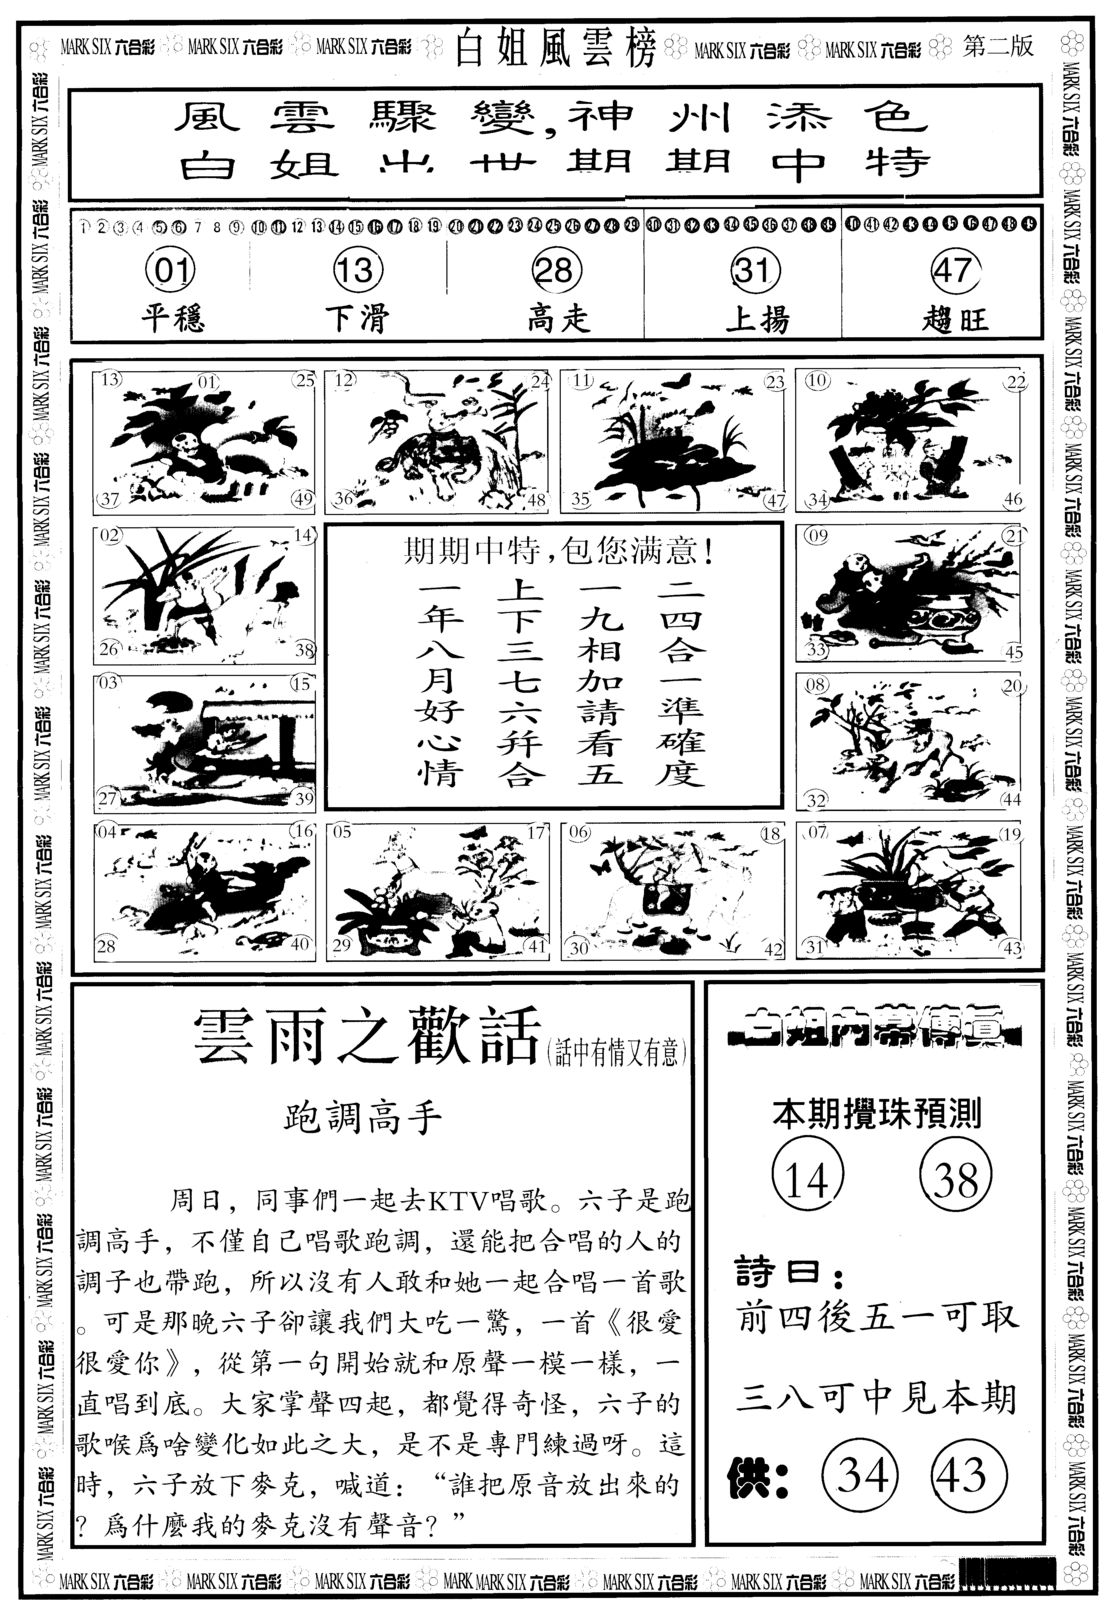 MARK SIX 六合彩 MARK SIX 六合彩 MARK SIX 六合彩 白姐風雲榜 MARK SIX 六合彩 MARK SIX 六合彩 第二版
風雲驟變,神州添色
白姐出世期期中特
1 2 3 4 5 6 7 8 9 10 11 12 13 14 15 16 17 18 19 20 21 22 23 24 25 26 27 28 29 30 31 32 33 34 35 36 37 38 39 40 41 42 43 44 45 46 47 48 49
01 13 28 31 47
平穩 下滑 高走 上揚 趨旺
13 01 25 12 24 11 23 10 22
37 49 36 48 35 47 34 46
02 14
26 38
03 15
27 39
期期中特,包您满意!
二四合一準確度
一九相加請看五
上下三七六幷合
一年八月好心情
09 21
33 45
08 20
32 44
04 16 05 17 06 18 07 19
28 40 29 41 30 42 31 43
雲雨之歡話(話中有情又有意)
跑調高手
周日，同事們一起去KTV唱歌。六子是跑
調高手，不僅自己唱歌跑調，還能把合唱的人的
調子也帶跑，所以沒有人敢和她一起合唱一首歌
。可是那晚六子卻讓我們大吃一驚，一首《很愛
很愛你》，從第一句開始就和原聲一模一樣，一
直唱到底。大家掌聲四起，都覺得奇怪，六子的
歌喉爲啥變化如此之大，是不是專門練過呀。這
時，六子放下麥克，喊道：“誰把原音放出來的
？爲什麼我的麥克沒有聲音？”
白姐內幕傳真
本期攪珠預測
14 38
詩曰：
前四後五一可取
三八可中見本期
供： 34 43
MARK SIX 六合彩 MARK SIX 六合彩 MARK SIX 六合彩 MARK MARK SIX 六合彩 MARK SIX 六合彩 MARK SIX 六合彩 MARK SIX 六合彩